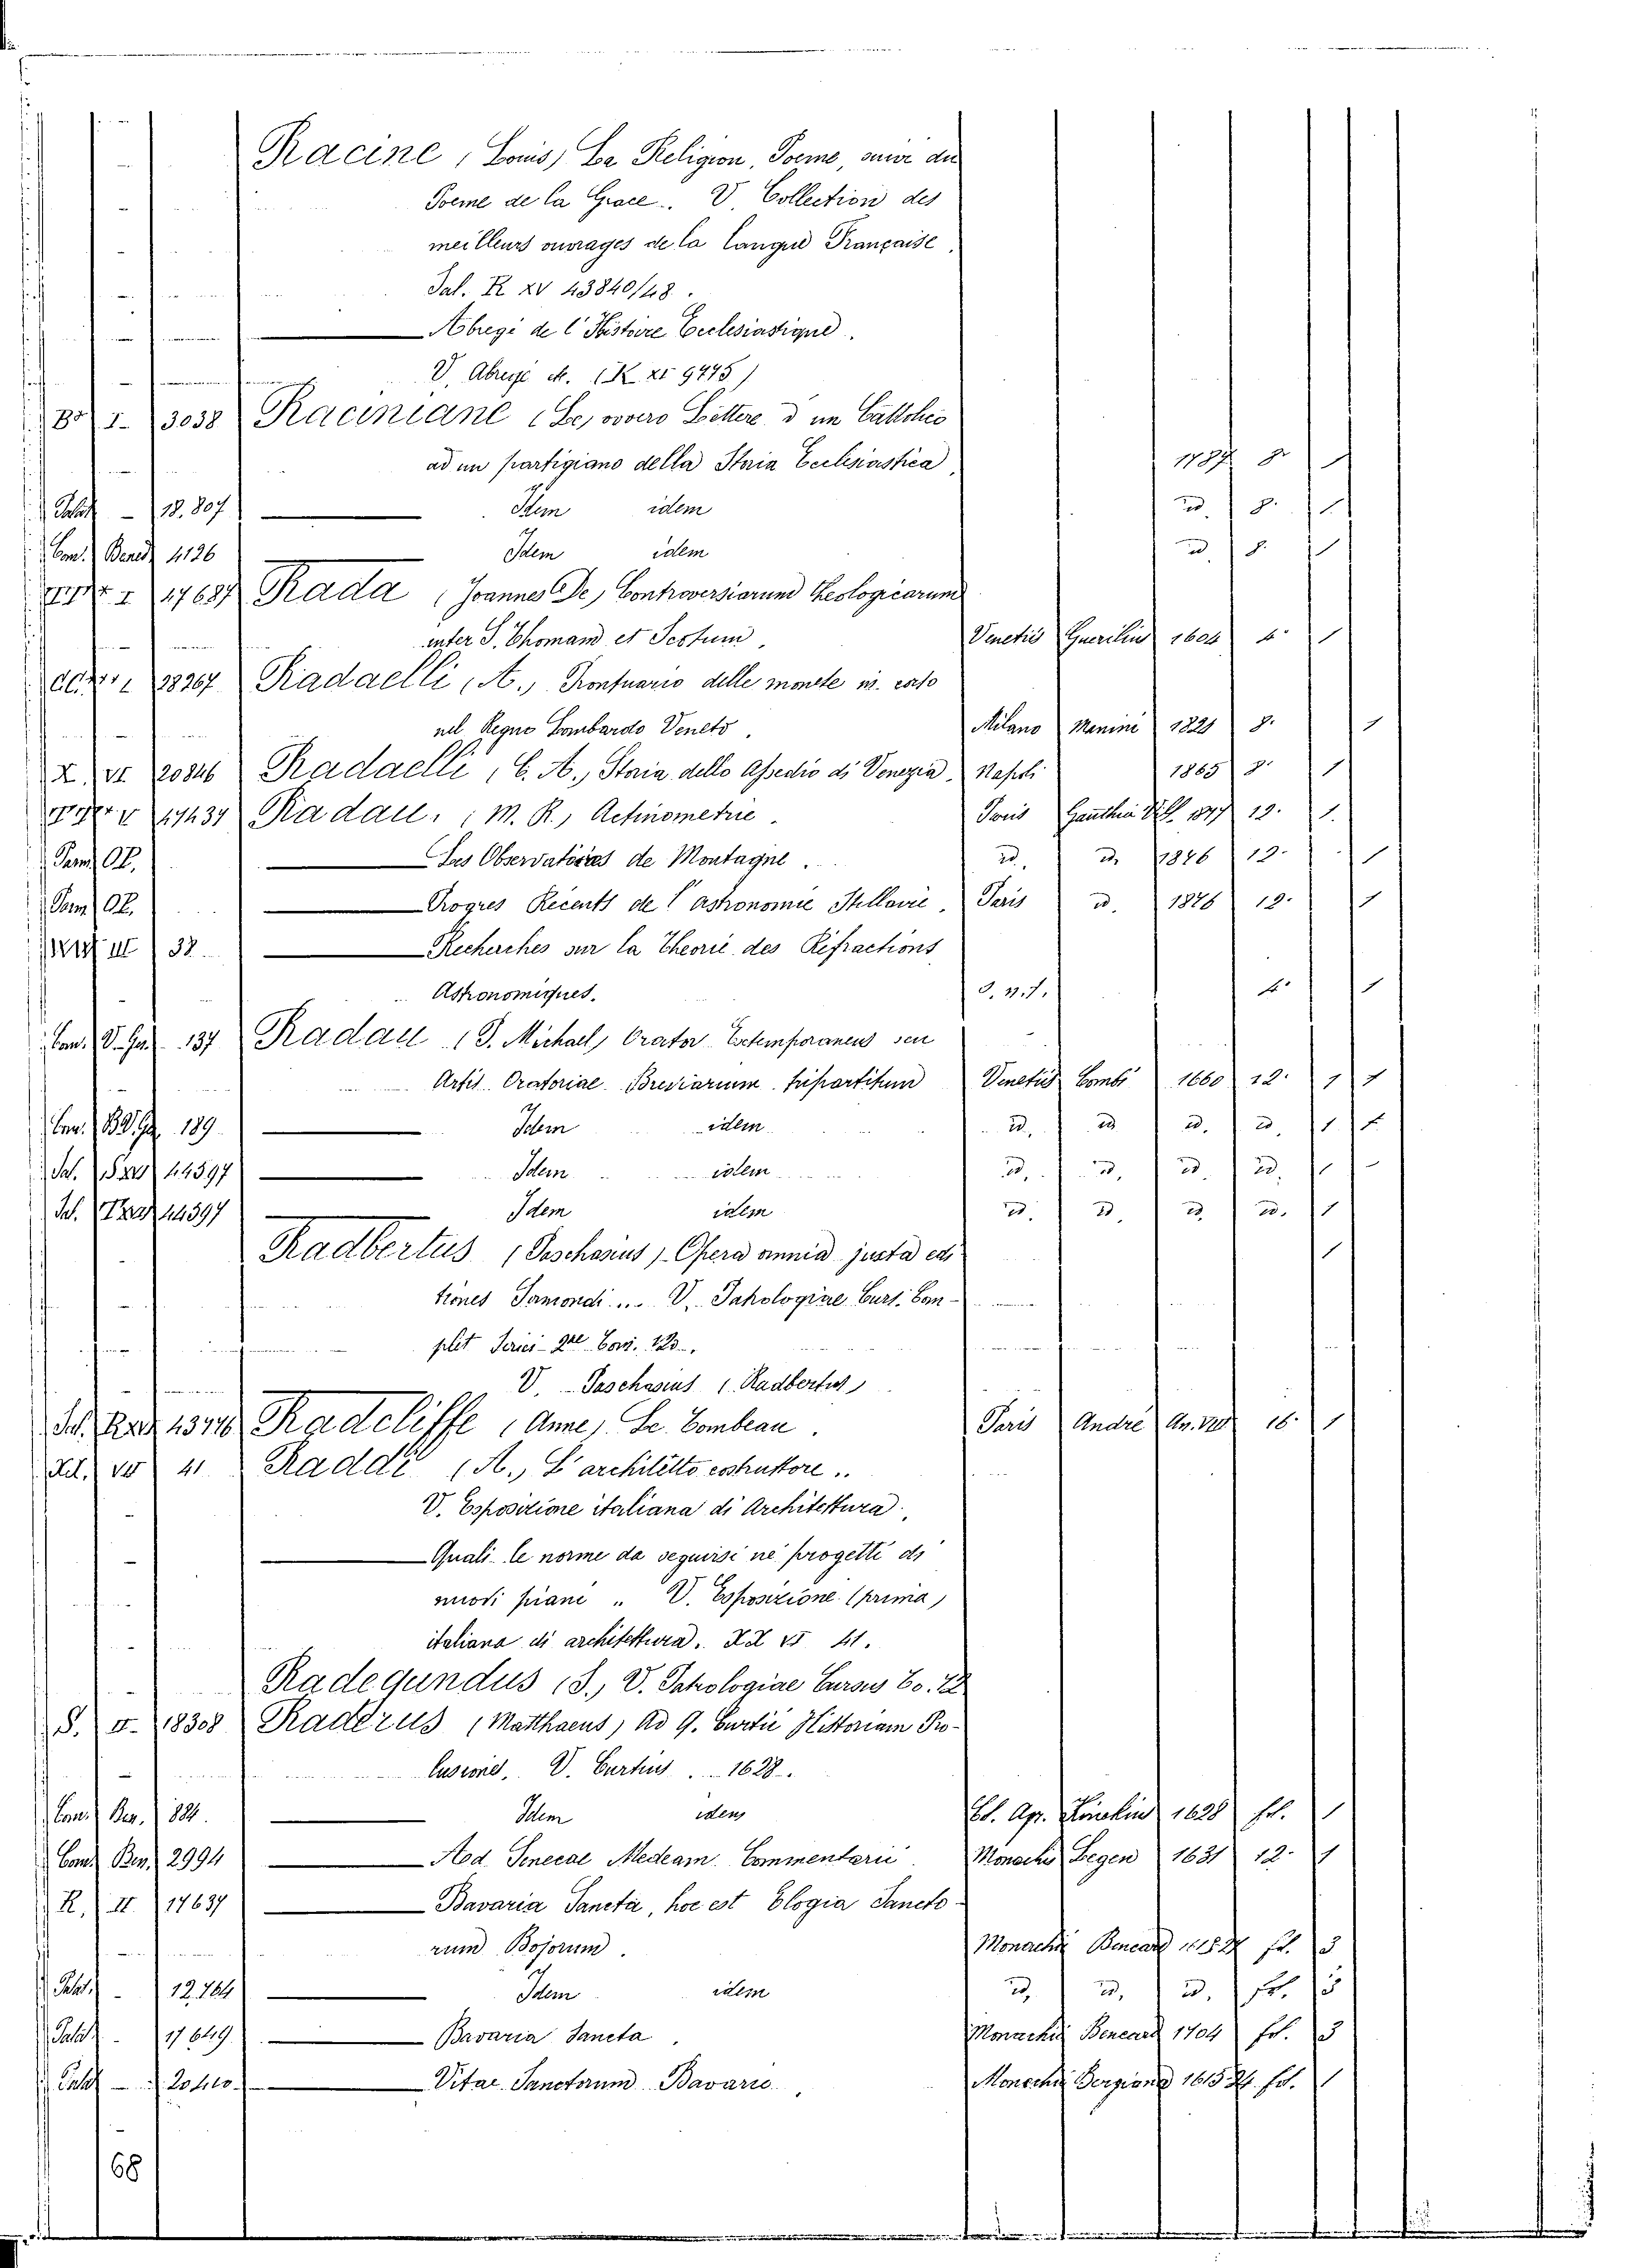 Racine, Louis, La Religion, Poeme, suivi du
Poeme de la Grace.. V. Collection des
meilleurs ouvrages de la langue Française,
Sal. R XV 43840/48.
Abregé de l'Histoire Ecclesiastique.
V. Abregé (K XI 9475)
I. 3038 Raciniane (Le, ovvero Lettere d'un Cattolico
ad un partigiano della Storia Ecclesiastica, 1787 8. 1
18.807 Idem idem id. 8. 1
Con. Bened. 4126 Idem idem id. 8. 1
I 17687 Rada (Joannes De, Controversiarum theologicarum
inter S. Thomam et Scotum, Venetiis Guerilius 1604 4. 1
I 18267 Radaelli, A., Prontuario delle monete in corso
nel Regno Lombardo Veneto. Milano Manini 1821 8. 1
X. VI 20846 Radaelli, C. A., Storia dello Assedio di Venezia, Napoli 1865 8. 1
V 41434 Radau, M. R., Actinometrie. Paris Gauthier Vill. 1877 12. 1
Les Observatoires de Montagne. id. id. 1876 12. 1
Progres Récents de l'astronomie Stellaire, Paris id. 1876 12. 1
III 38 Recherches sur la Theorie des Refractions
Astronomiques. S. N. T. 4. 1
Con. V. 137 Radau (P. Michael, Orator Extemporaneus seu
Artis Oratoriae Breviarium tripartitum Venetiis Combi 1660 12. 1 1
Con. 189 Idem idem id. id. id. id. 1 1
Sal. 44597 Idem idem id. id. id. id. 1
Sal. 44597 Idem idem id. id. id. id. 1
Radbertus (Paschasius), Opera omnia juxta edi
tiones Sirmondi... V. Patrologiae Curs. Com-
plet Series 2de Tom. 120. 1
V. Paschasius (Radbertus)
Sal. 13746 Radcliffe, Anne, Le Tombeau. Paris André An. VII 16. 1
VI 41 Raddi (A., L'architetto costruttore..
V. Esposizione italiana di Architettura.
Quali le norme da seguirsi ne' progetti di
nuovi piani.. V. Esposizione (prima)
italiana di architettura. XX VI 41.
Radegundus (S., V. Patrologiae Cursus To. 72
S. II. 18308 Raderus (Matthaeus, Ad Q. Curtii Historiam Pro-
lusiones, V. Curtius.. 1628.
Con. Ben. 884. Idem idem Col. Agr. Kinckius 1628 fol. 1
Con. Ben. 2994 Ad Senecae Medeam Commentarii. Monachii Segen 1631 12. 1
R. II. 17637 Bavaria Sancta, hoc est Elogia Sancto-
rum Bojorum. Monachii Bencard fol. 3
Palat. - 12.764 Idem idem id. id. id. fol. 3
Palat. - 17649 Bavaria Sancta. Monachii Bencard 1704 fol. 3
Palat. - 20410 Vitae Sanctorum Bavarie. Monachii Bergiana 1615 fol. 1
68